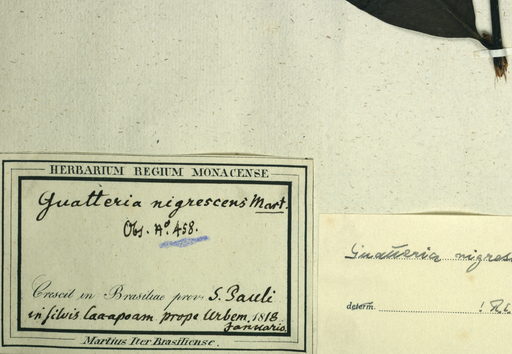 HERBARIUM REGIUM MONACENSE
Guatteria nigrescens Mart.
Obs. No. 458.
Crescit in Brasiliae prov. S. Pauli
in silvis Caa-apoam prope Urbem. 1818
Januario.
Martius Iter Brasiliense.
Guatteria nigres
determ. ! R.E.